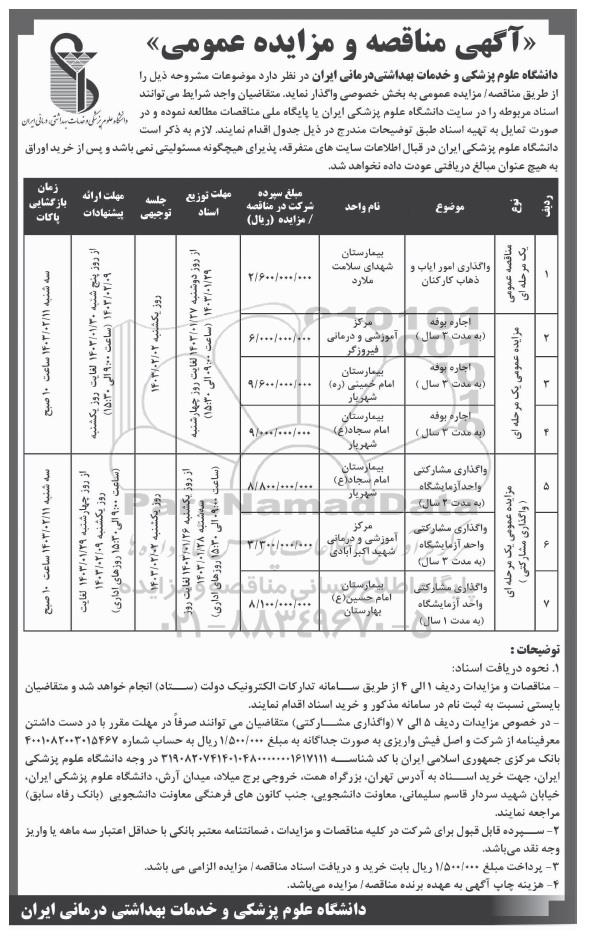 «آگهی مناقصه و مزایده عمومی»
دانشگاه علوم پزشکی و خدمات بهداشتی، درمانی ایران
دانشگاه علوم پزشکی و خدمات بهداشتی درمانی ایران در نظر دارد موضوعات مشروحه ذیل را
از طریق مناقصه/ مزایده عمومی به بخش خصوصی واگذار نماید. متقاضیان واجد شرایط می‌توانند
اسناد مربوطه را در سایت دانشگاه علوم پزشکی ایران یا پایگاه ملی مناقصات مطالعه نموده و در
صورت تمایل به تهیه اسناد طبق توضیحات مندرج در ذیل جدول اقدام نمایند. لازم به ذکر است
دانشگاه علوم پزشکی ایران در قبال اطلاعات سایت های متفرقه، پذیرای هیچگونه مسئولیتی نمی باشد و پس از خرید اوراق
به هیچ عنوان مبالغ دریافتی عودت داده نخواهد شد.
ردیف
نوع
موضوع
نام واحد
مبلغ سپرده
شرکت در مناقصه
/ مزایده (ریال)
مهلت توزیع
اسناد
جلسه
توجیهی
مهلت ارائه
پیشنهادات
زمان
بازگشایی
پاکات
۱
مناقصه عمومی
یک مرحله ای
واگذاری امور ایاب و
ذهاب کارکنان
بیمارستان
شهدای سلامت
ملارد
۲/۶۰۰/۰۰۰/۰۰۰
از روز دوشنبه ۱۴۰۳/۰۱/۲۷ لغایت روز چهارشنبه
۱۴۰۳/۰۱/۲۹ (ساعت ۰۹:۰۰ الی ۱۵:۳۰)
روز یکشنبه ۱۴۰۳/۰۲/۰۲
از روز پنج شنبه ۱۴۰۳/۰۱/۳۰ لغایت روز یکشنبه
۱۴۰۳/۰۲/۰۹ (ساعت ۹:۰۰ الی ۱۵:۳۰)
سه شنبه ۱۴۰۳/۰۲/۱۱ ساعت ۱۰ صبح
۲
مزایده عمومی یک مرحله ای
اجاره بوفه
(به مدت ۳ سال )
مرکز
آموزشی و درمانی
فیروزگر
۶/۰۰۰/۰۰۰/۰۰۰
۳
اجاره بوفه
(به مدت ۳ سال )
بیمارستان
امام خمینی (ره)
شهریار
۹/۶۰۰/۰۰۰/۰۰۰
۴
اجاره بوفه
(به مدت ۳ سال )
بیمارستان
امام سجاد(ع)
شهریار
۹/۰۰۰/۰۰۰/۰۰۰
۵
مزایده عمومی یک مرحله ای
( واگذاری مشارکتی )
واگذاری مشارکتی
واحد آزمایشگاه
(به مدت ۳ سال)
بیمارستان
امام سجاد(ع)
شهریار
۸/۸۰۰/۰۰۰/۰۰۰
از روز یکشنبه ۱۴۰۳/۰۱/۲۶ لغایت روز
سه‌شنبه ۱۴۰۳/۰۱/۲۸
(ساعت ۰۹:۰۰ الی ۱۵:۳۰ روزهای اداری)
روز یکشنبه ۱۴۰۳/۰۲/۰۲
از روز چهارشنبه ۱۴۰۳/۰۱/۲۹ لغایت
روز یکشنبه ۱۴۰۳/۰۲/۰۹
(ساعت ۰۹:۰۰ الی ۱۵:۳۰ روزهای اداری)
سه شنبه ۱۴۰۳/۰۲/۱۱ ساعت ۱۰ صبح
۶
واگذاری مشارکتی
واحد آزمایشگاه
(به مدت ۳ سال)
مرکز
آموزشی و درمانی
شهید اکبرآبادی
۳/۳۰۰/۰۰۰/۰۰۰
۷
واگذاری مشارکتی
واحد آزمایشگاه
(به مدت ۱ سال)
بیمارستان
امام حسین(ع)
بهارستان
۸/۱۰۰/۰۰۰/۰۰۰
ParsNamadData
پایگاه اطلاع رسانی مناقصه و مزایده
۰۲۱-۸۸۳۴۹۶۷۰-۵
توضیحات :
۱. نحوه دریافت اسناد:
– مناقصات و مزایدات ردیف ۱ الی ۴ از طریق سـامانه تدارکات الکترونیک دولت (ستاد) انجام خواهد شد و متقاضیان
بایستی نسبت به ثبت نام در سامانه مذکور و خرید اسناد اقدام نمایند.
– در خصوص مزایدات ردیف ۵ الی ۷ (واگذاری مشـارکتی) متقاضیان می توانند صرفاً در مهلت مقرر با در دست داشتن
معرفینامه از شرکت و اصل فیش واریزی به صورت جداگانه به مبلغ ۱/۵۰۰/۰۰۰ ریال به حساب شماره ۴۰۰۱۰۸۲۰۰۳۰۱۵۴۶۷
بانک مرکزی جمهوری اسلامی ایران با کد شناسـه ۳۱۹۰۸۲۰۷۴۱۴۰۱۰۴۸۰۰۰۰۰۰۰۱۶۱۷۱۱۱ در وجه دانشگاه علوم پزشکی
ایران، جهت خرید اسـناد به آدرس تهران، بزرگراه همت، خروجی برج میلاد، میدان آرش، دانشگاه علوم پزشکی ایران،
خیابان شهید سردار قاسم سلیمانی، معاونت دانشجویی، جنب کانون های فرهنگی معاونت دانشجویی (بانک رفاه سابق)
مراجعه نمایند.
۲– سـپرده قابل قبول برای شرکت در کلیه مناقصات و مزایدات ، ضمانتنامه معتبر بانکی با حداقل اعتبار سه ماهه یا واریز
وجه نقد می‌باشد.
۳– پرداخت مبلغ ۱/۵۰۰/۰۰۰ ریال بابت خرید و دریافت اسناد مناقصه/ مزایده الزامی می باشد.
۴– هزینه چاپ آگهی به عهده برنده مناقصه/ مزایده می‌باشد.
دانشگاه علوم پزشکی و خدمات بهداشتی درمانی ایران